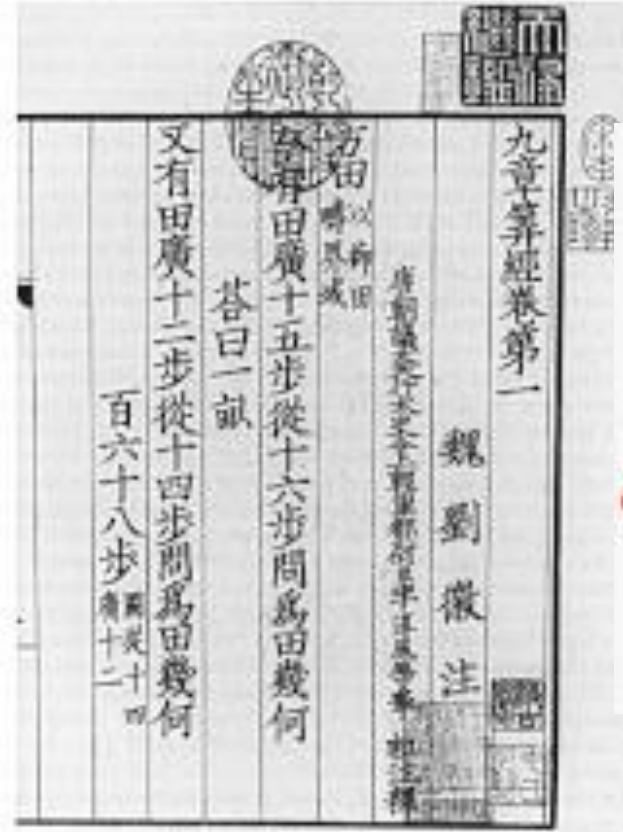 九章筭經卷第一
魏劉徽注
唐朝議大夫行太史令上輕車都尉臣李淳風等奉 勑注釋
方田 以御田
疇界域
今有田廣十五步從十六步問爲田幾何
荅曰一畝
又有田廣十二步從十四步問爲田幾何
百六十八步 圖從十四
廣十二